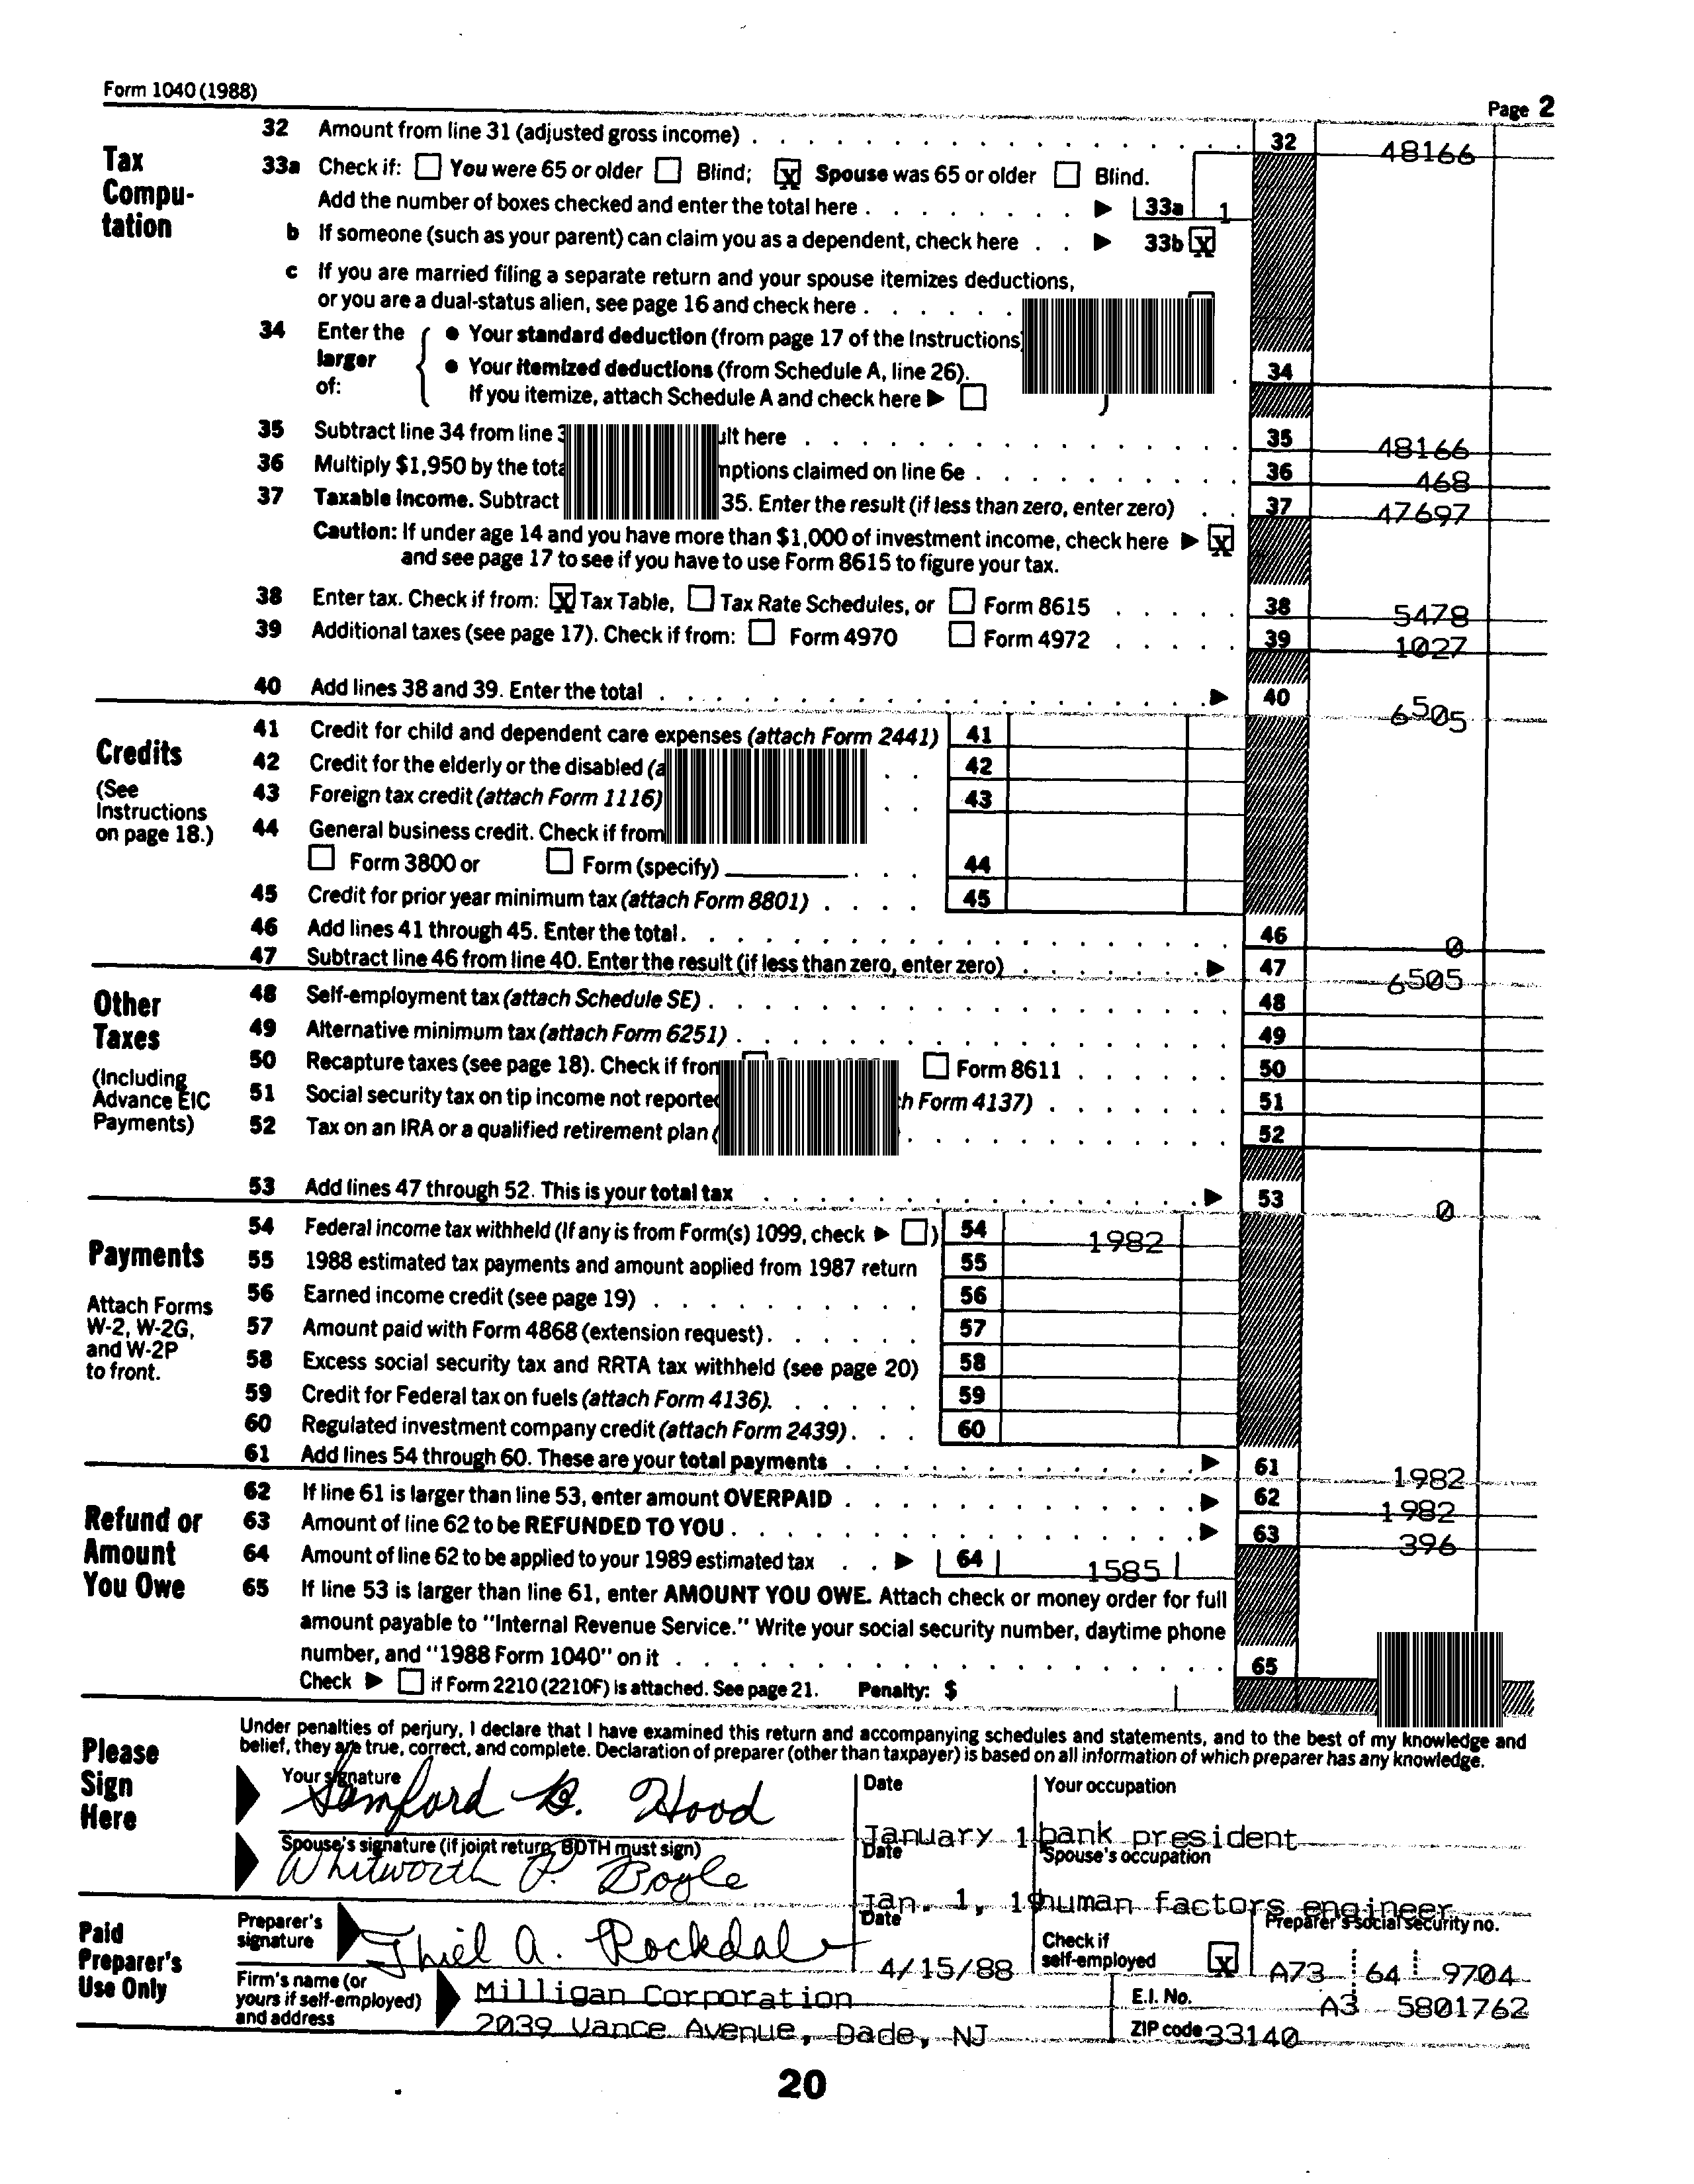 Form 1040 (1988)
Page 2
Tax Compu-tation
32 Amount from line 31 (adjusted gross income) 32 48166
33a Check if: You were 65 or older Blind; X Spouse was 65 or older Blind.
Add the number of boxes checked and enter the total here 33a 1
b If someone (such as your parent) can claim you as a dependent, check here 33b X
c If you are married filing a separate return and your spouse itemizes deductions,
or you are a dual-status alien, see page 16 and check here
34 Enter the larger of:
• Your standard deduction (from page 17 of the Instructions)
• Your itemized deductions (from Schedule A, line 26).
If you itemize, attach Schedule A and check here
34
35 Subtract line 34 from line here 35 48166
36 Multiply $1,950 by the claimed on line 6e 36 468
37 Taxable income. Subtract 35. Enter the result (if less than zero, enter zero) 37 47697
Caution: If under age 14 and you have more than $1,000 of investment income, check here X
and see page 17 to see if you have to use Form 8615 to figure your tax.
38 Enter tax. Check if from: X Tax Table, Tax Rate Schedules, or Form 8615 38 5478
39 Additional taxes (see page 17). Check if from: Form 4970 Form 4972 39 1027
40 Add lines 38 and 39. Enter the total 40 6505
Credits
(See Instructions on page 18.)
41 Credit for child and dependent care expenses (attach Form 2441) 41
42 Credit for the elderly or the disabled 42
43 Foreign tax credit (attach Form 1116) 43
44 General business credit. Check if from
Form 3800 or Form (specify) 44
45 Credit for prior year minimum tax (attach Form 8801) 45
46 Add lines 41 through 45. Enter the total. 46 0
47 Subtract line 46 from line 40. Enter the result (if less than zero, enter zero) 47 6505
Other Taxes
(Including Advance EIC Payments)
48 Self-employment tax (attach Schedule SE) 48
49 Alternative minimum tax (attach Form 6251) 49
50 Recapture taxes (see page 18). Check if Form 8611 50
51 Social security tax on tip income not Form 4137) 51
52 Tax on an IRA or a qualified retirement plan 52
53 Add lines 47 through 52. This is your total tax 53 0
Payments
Attach Forms W-2, W-2G, and W-2P to front.
54 Federal income tax withheld (If any is from Form(s) 1099, check ) 54 1982
55 1988 estimated tax payments and amount applied from 1987 return 55
56 Earned income credit (see page 19) 56
57 Amount paid with Form 4868 (extension request). 57
58 Excess social security tax and RRTA tax withheld (see page 20) 58
59 Credit for Federal tax on fuels (attach Form 4136). 59
60 Regulated investment company credit (attach Form 2439) 60
61 Add lines 54 through 60. These are your total payments 61 1982
Refund or Amount You Owe
62 If line 61 is larger than line 53, enter amount OVERPAID 62 1982
63 Amount of line 62 to be REFUNDED TO YOU 63 396
64 Amount of line 62 to be applied to your 1989 estimated tax 64 1585
65 If line 53 is larger than line 61, enter AMOUNT YOU OWE. Attach check or money order for full
amount payable to "Internal Revenue Service." Write your social security number, daytime phone
number, and "1988 Form 1040" on it 65
Check if Form 2210 (2210F) is attached. See page 21. Penalty: $
Please Sign Here
Under penalties of perjury, I declare that I have examined this return and accompanying schedules and statements, and to the best of my knowledge and
belief, they are true, correct, and complete. Declaration of preparer (other than taxpayer) is based on all information of which preparer has any knowledge.
Your signature Date Your occupation
Samford B. Hood January 1 bank president
Spouse's signature (if joint return, BOTH must sign) Date Spouse's occupation
Whitworth P. Boyle Jan. 1, 19 human factors engineer
Paid Preparer's Use Only
Preparer's signature Date Check if self-employed Preparer's social security no.
Thiel A. Rockdale 4/15/88 X A73 64 9704
Firm's name (or yours if self-employed) and address
Milligan Corporation E.I. No. A3 5801762
2039 Vance Avenue, Dade, NJ ZIP code 33140
20